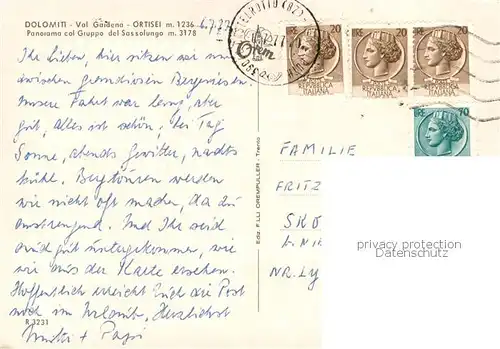 DOLOMITI - Val Gardena - ORTISEI m. 1236
Panorama col Gruppo del Sassolungo m. 3178
Ihr Lieben, hier sitzen wir nun
zwischen grandiosen Bergriesen.
Unsere Fahrt war lang, aber
gut, alles ist schön, bei Tag
Sonne, abends Gewitter, nachts
kühl. Bergtouren werden
wir nicht oft machen, da zu
anstrengend. Und Ihr seid
auch gut untergekommen, wie
wir aus der Karte ersehen.
Hoffentlich erreicht Euch die Post
noch im Urlaub. Herzlichst
Mutti + Papi
R 3231
Ediz. F.LLI GREMPULLER - Trento
LIRE 20
20
20
LIRE 70
REPVBBLICA
ITALIANA
REPVBBLICA
ITALIANA
REPVBBLICA
ITALIANA
FAMILIE
FRITZ
NR. LY
privacy protection
Datenschutz